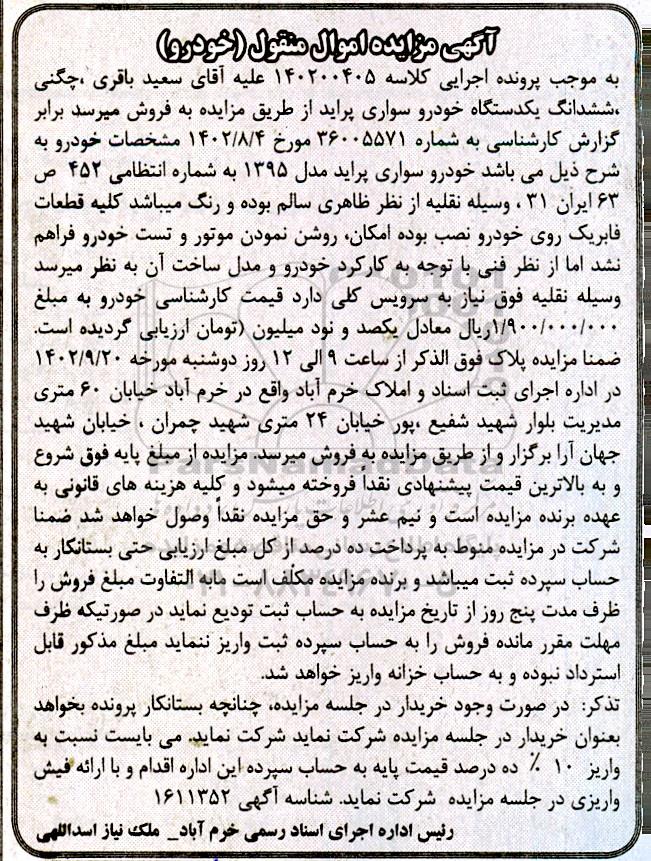 آگهی مزایده اموال منقول (خودرو)
به موجب پرونده اجرایی کلاسه ۱۴۰۲۰۰۴۰۵ علیه آقای سعید باقری ،چگنی
،ششدانگ یکدستگاه خودرو سواری پراید از طریق مزایده به فروش میرسد برابر
گزارش کارشناسی به شماره ۳۶۰۰۵۵۷۱ مورخ ۱۴۰۲/۸/۴ مشخصات خودرو به
شرح ذیل می باشد خودرو سواری پراید مدل ۱۳۹۵ به شماره انتظامی ۴۵۲ ص
۶۳ ایران ۳۱ ، وسیله نقلیه از نظر ظاهری سالم بوده و رنگ میباشد کلیه قطعات
فابریک روی خودرو نصب بوده امکان، روشن نمودن موتور و تست خودرو فراهم
نشد اما از نظر فنی با توجه به کارکرد خودرو و مدل ساخت آن به نظر میرسد
وسیله نقلیه فوق نیاز به سرویس کلی دارد قیمت کارشناسی خودرو به مبلغ
۱/۹۰۰/۰۰۰/۰۰۰ریال معادل یکصد و نود میلیون (تومان ارزیابی گردیده است.
ضمنا مزایده پلاک فوق الذکر از ساعت ۹ الی ۱۲ روز دوشنبه مورخه ۱۴۰۲/۹/۲۰
در اداره اجرای ثبت اسناد و املاک خرم آباد واقع در خرم آباد خیابان ۶۰ متری
مدیریت بلوار شهید شفیع ،پور خیابان ۲۴ متری شهید چمران ، خیابان شهید
جهان آرا برگزار و از طریق مزایده به فروش میرسد. مزایده از مبلغ پایه فوق شروع
و به بالاترین قیمت پیشنهادی نقداً فروخته میشود و کلیه هزینه های قانونی به
عهده برنده مزایده است و نیم عشر و حق مزایده نقداً وصول خواهد شد ضمنا
شرکت در مزایده منوط به پرداخت ده درصد از کل مبلغ ارزیابی حتی بستانکار به
حساب سپرده ثبت میباشد و برنده مزایده مکلف است مابه التفاوت مبلغ فروش را
ظرف مدت پنج روز از تاریخ مزایده به حساب ثبت تودیع نماید در صورتیکه ظرف
مهلت مقرر مانده فروش را به حساب سپرده ثبت واریز ننماید مبلغ مذکور قابل
استرداد نبوده و به حساب خزانه واریز خواهد شد.
تذکر: در صورت وجود خریدار در جلسه مزایده، چنانچه بستانکار پرونده بخواهد
بعنوان خریدار در جلسه مزایده شرکت نماید شرکت نماید. می بایست نسبت به
واریز ۱۰ ٪ ده درصد قیمت پایه به حساب سپرده این اداره اقدام و با ارائه فیش
واریزی در جلسه مزایده شرکت نماید. شناسه آگهی ۱۶۱۱۳۵۲
رئیس اداره اجرای اسناد رسمی خرم آباد_ ملک نیاز اسداللهی
ParsNamadData